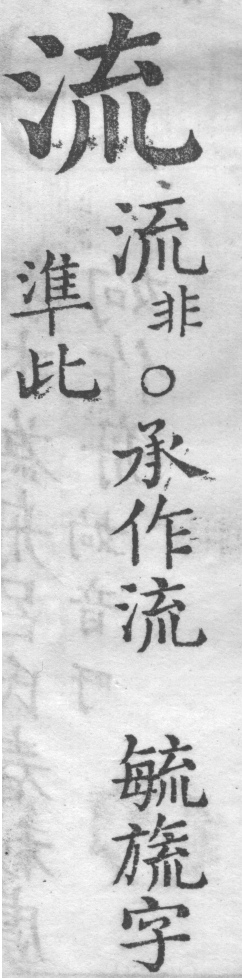 流
流非○承作流 毓旒字
準此